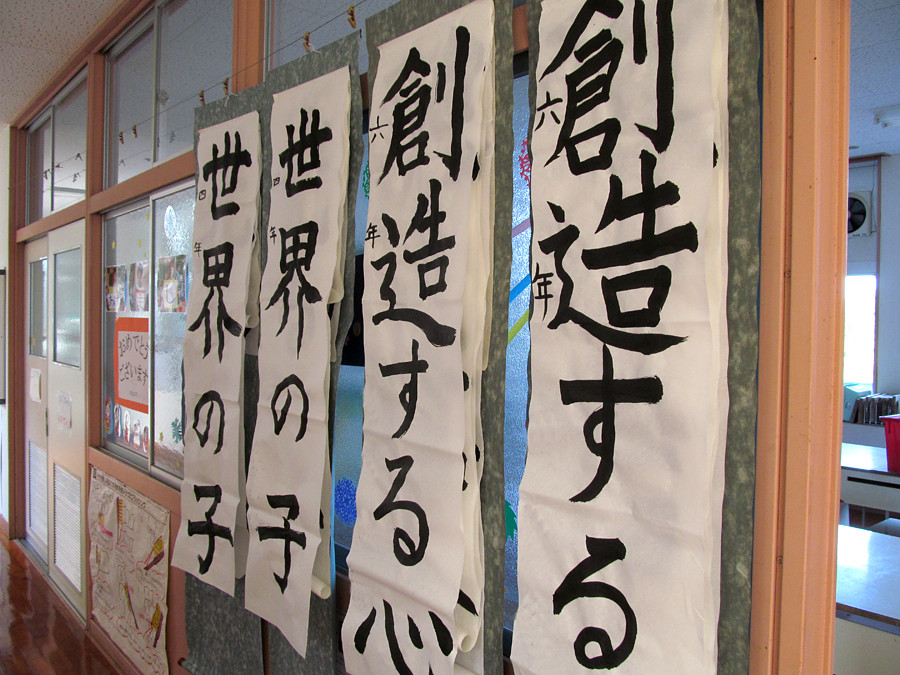 創造する
六年
創造する心
六年
世界の子
四年
世界の子
四年
おめでとう
ございます